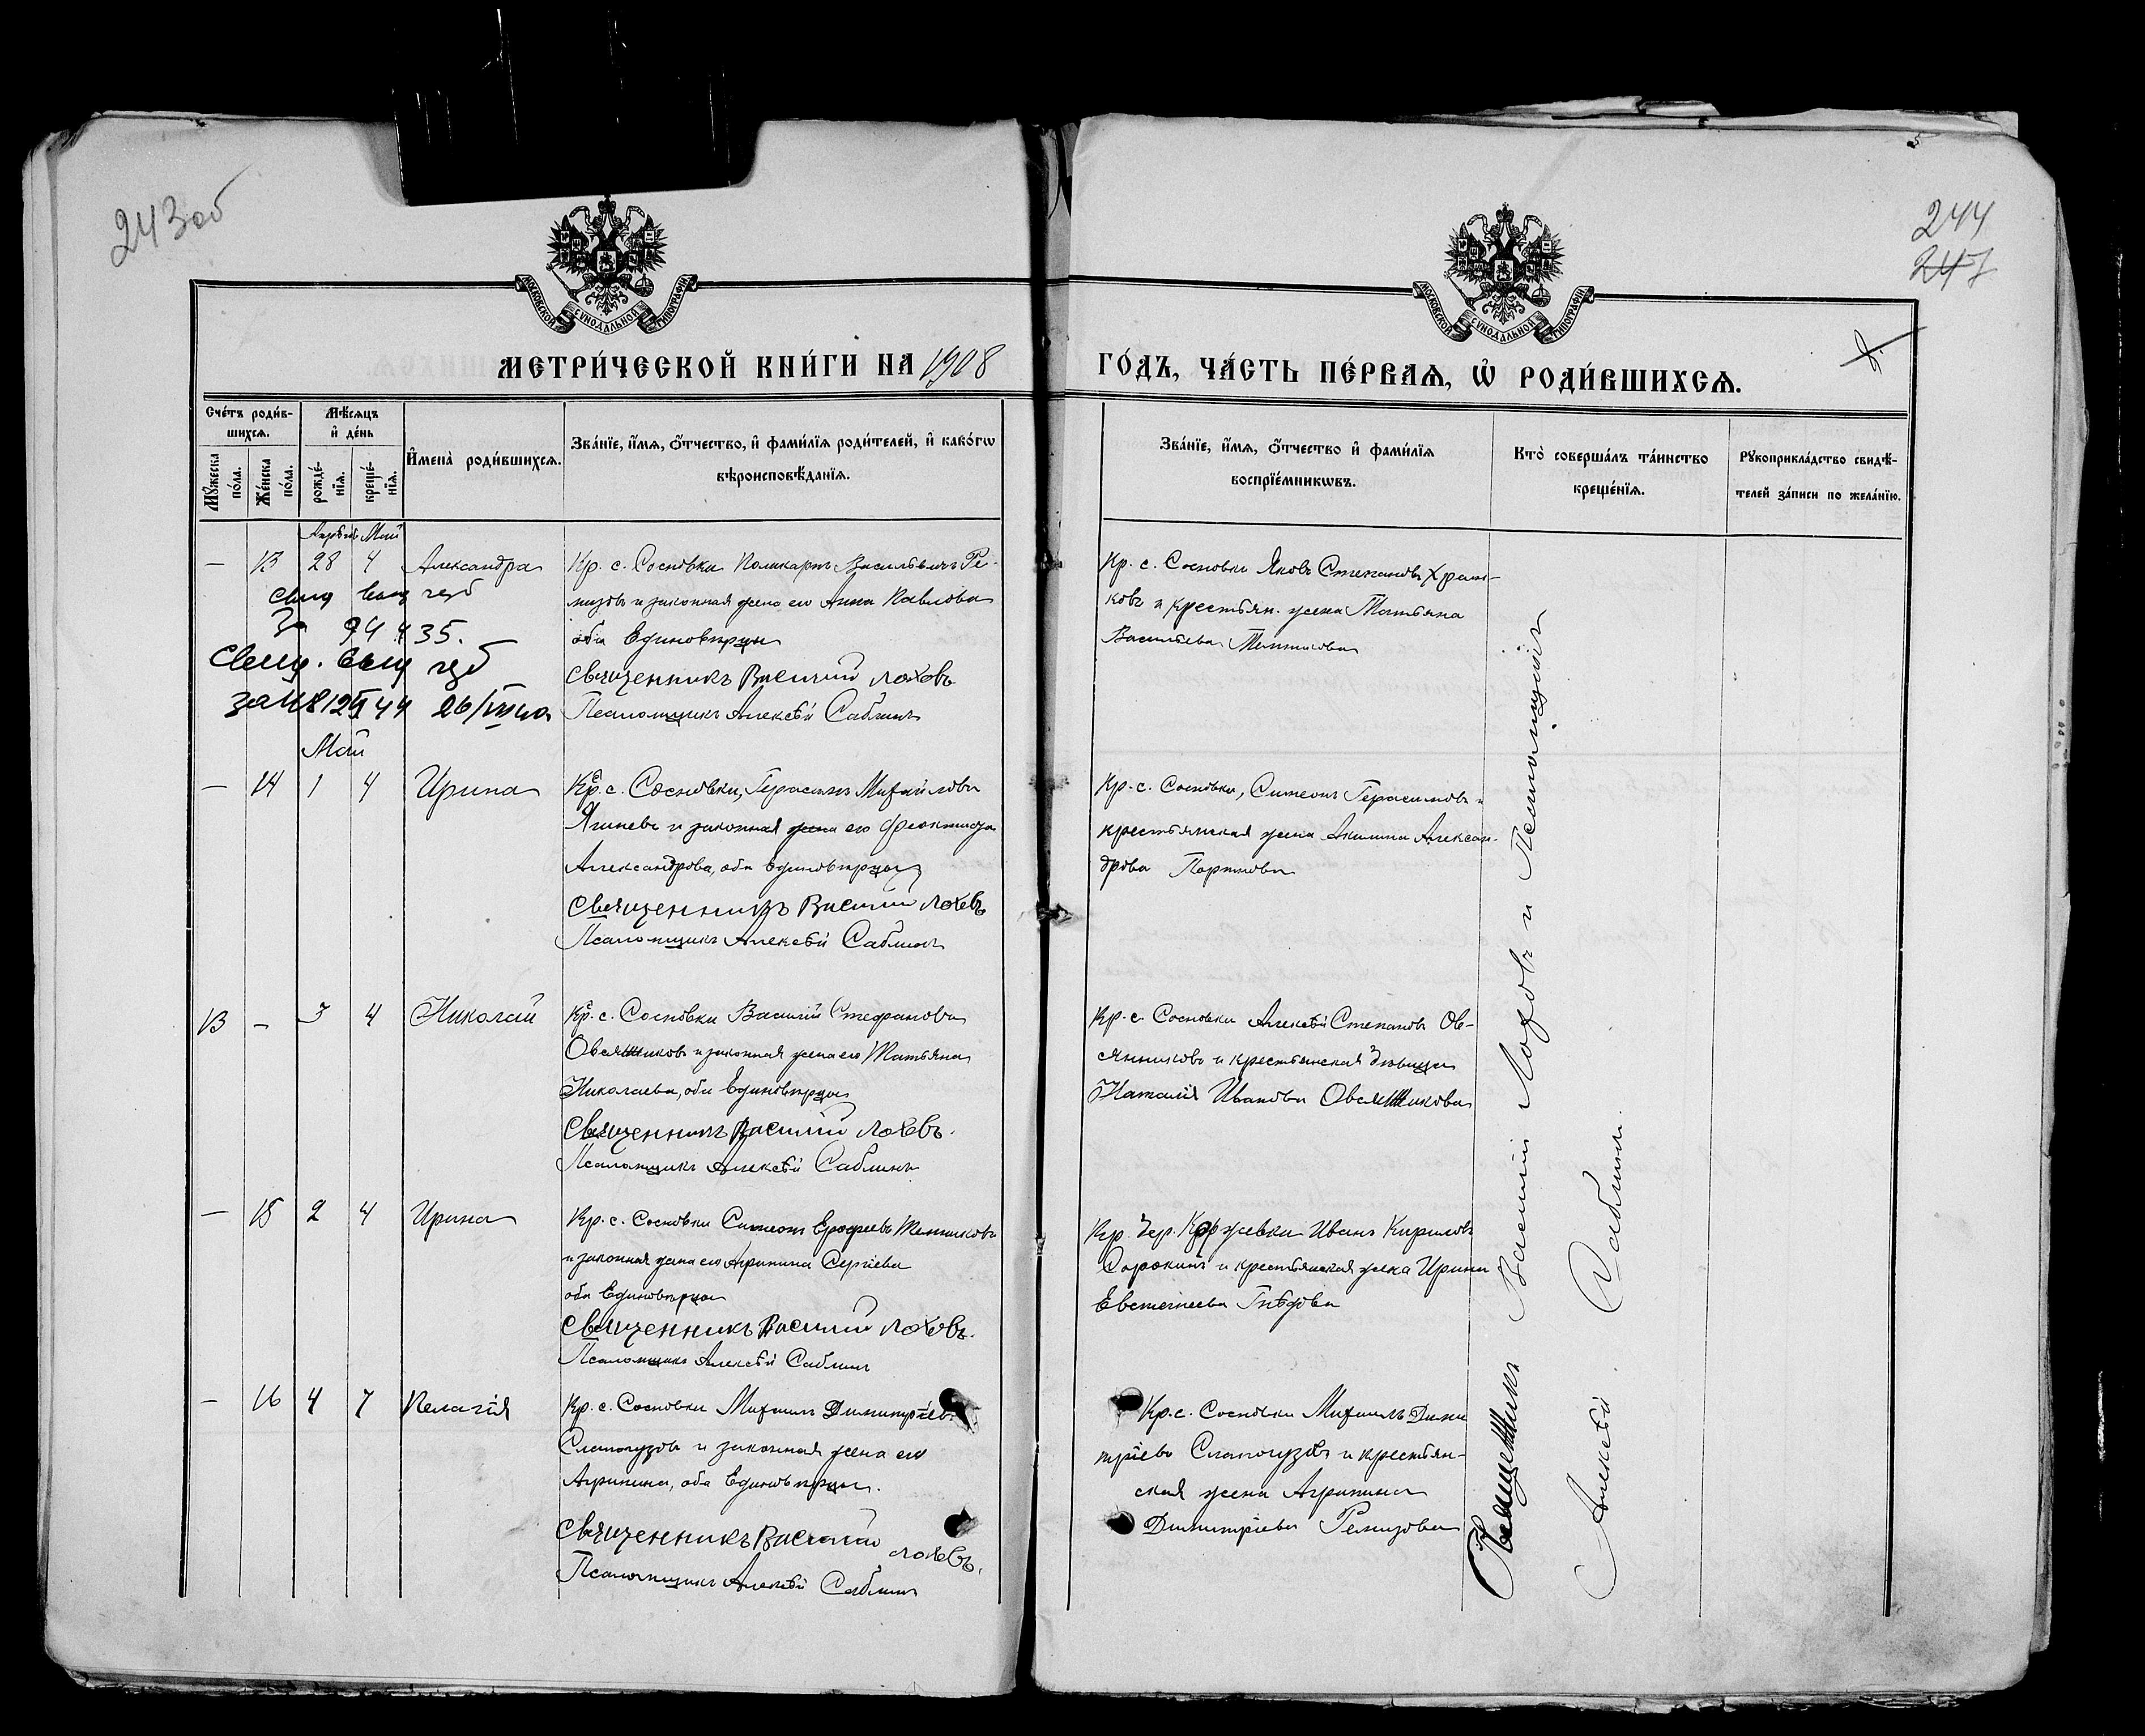 243об
244
247
МОСКОВСКОЙ СѴНОДАЛЬНОЙ ТИПОГРАФІИ
МОСКОВСКОЙ СѴНОДАЛЬНОЙ ТИПОГРАФІИ
МЕТРИ́ЧЕСКОЙ КНИ́ГИ НА 1908
ГО́ДЪ, ЧА́СТЬ ПЕ́РВАѦ, Ѡ҆ РОДИ́ВШИХСѦ.
Сче́тъ роди́в-
шихсѧ.
Мѣ́сѧцъ
и҆ де́нь
Мꙋ́жеска
по́ла.
Же́нска
по́ла.
рожде́-
нїѧ.
креще́-
нїѧ.
И҆мена̀ роди́вшихсѧ.
Зва́нїе, и҆́мѧ, ѻ҆́тчество, и҆ фами́лїѧ роди́телей, и҆ како́гѡ
вѣроисповѣ́данїѧ.
Зва́нїе, и҆́мѧ, ѻ҆́тчество и҆ фами́лїѧ
воспрїе́мникѡвъ.
Кто̀ соверша́лъ та́инство
креще́нїѧ.
Рꙋкоприкла́дство свидѣ́-
телей за́писи по жела́нїю.
Апрѣль Май
— 13 28 4 Александра
Кр. с. Сосновки Поликарпъ Васильевъ Ре-
мизовъ и законная жена его Анна Павлова
оба Единовѣрцы
Священникъ Василий Лоховъ
Псаломщикъ Алексѣй Саблинъ
Кр. с. Сосновки Яковъ Степановъ Храм-
ковъ и крестьян. жена Татьяна
Васильева Тенникова
За 94435.
Свид. выд
26/VIII
Май
— 14 1 4 Ирина
Кр. с. Сосновки, Герасимъ Михайловъ
Ягиневъ и законная жена его Феоктиста
Александрова, оба Единовѣрцы
Священникъ Василий Лоховъ
Псаломщикъ Алексѣй Саблинъ
Кр. с. Сосновки, Симеонъ Герасимовъ и
крестьянская жена Акилина Алексан-
дрова
13 — 3 4 Николай
Кр. с. Сосновки Василій Стефановъ
Овсянниковъ и законная жена его Татьяна
Николаева, оба Единовѣрцы
Священникъ Василий Лоховъ.
Псаломщикъ Алексѣй Саблинъ
Кр. с. Сосновки Алексѣй Степановъ Ов-
сянниковъ и крестьянская дѣвица
Наталія Иванова Овсянникова
— 15 2 4 Ирина
Кр. с. Сосновки Симеонъ Ерофеевъ Тенниковъ
и законная жена его Агрипина Сергіева
оба Единовѣрцы
Священникъ Василий Лоховъ.
Псаломщикъ Алексѣй Саблинъ
Кр. дер. Коржевки Иванъ Кириловъ
Сорокинъ и крестьянская жена Ирина
Евстигнеева Гнѣдова
— 16 4 7 Пелагія
Кр. с. Сосновки Михаилъ Димитріевъ
Слапогузовъ и законная жена его
Агрипина, оба Единовѣрцы.
Священникъ Василий Лоховъ.
Псаломщикъ Алексѣй Саблинъ
Кр. с. Сосновки Михаилъ Дими
тріевъ Слапогузовъ и крестьян-
ская жена Агрипина
Димитріева Ремизова
Священникъ Василий Лоховъ и Псаломщикъ
Алексѣй Саблинъ.